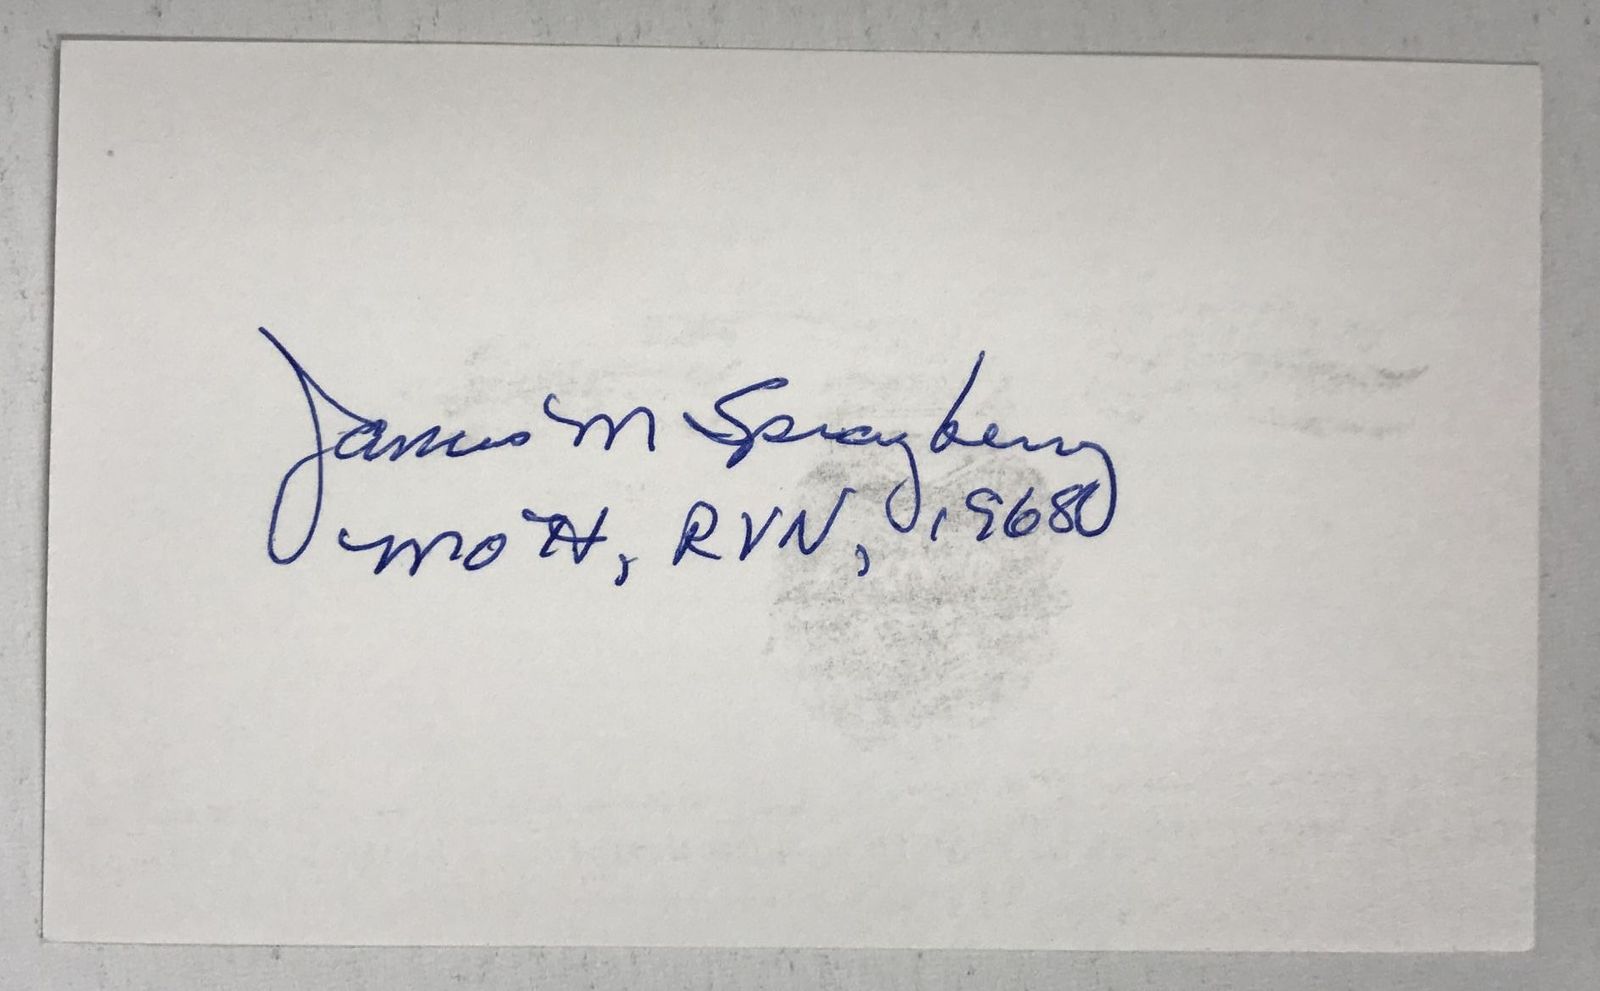 James M Sprayberry
MOH, RVN, 1968